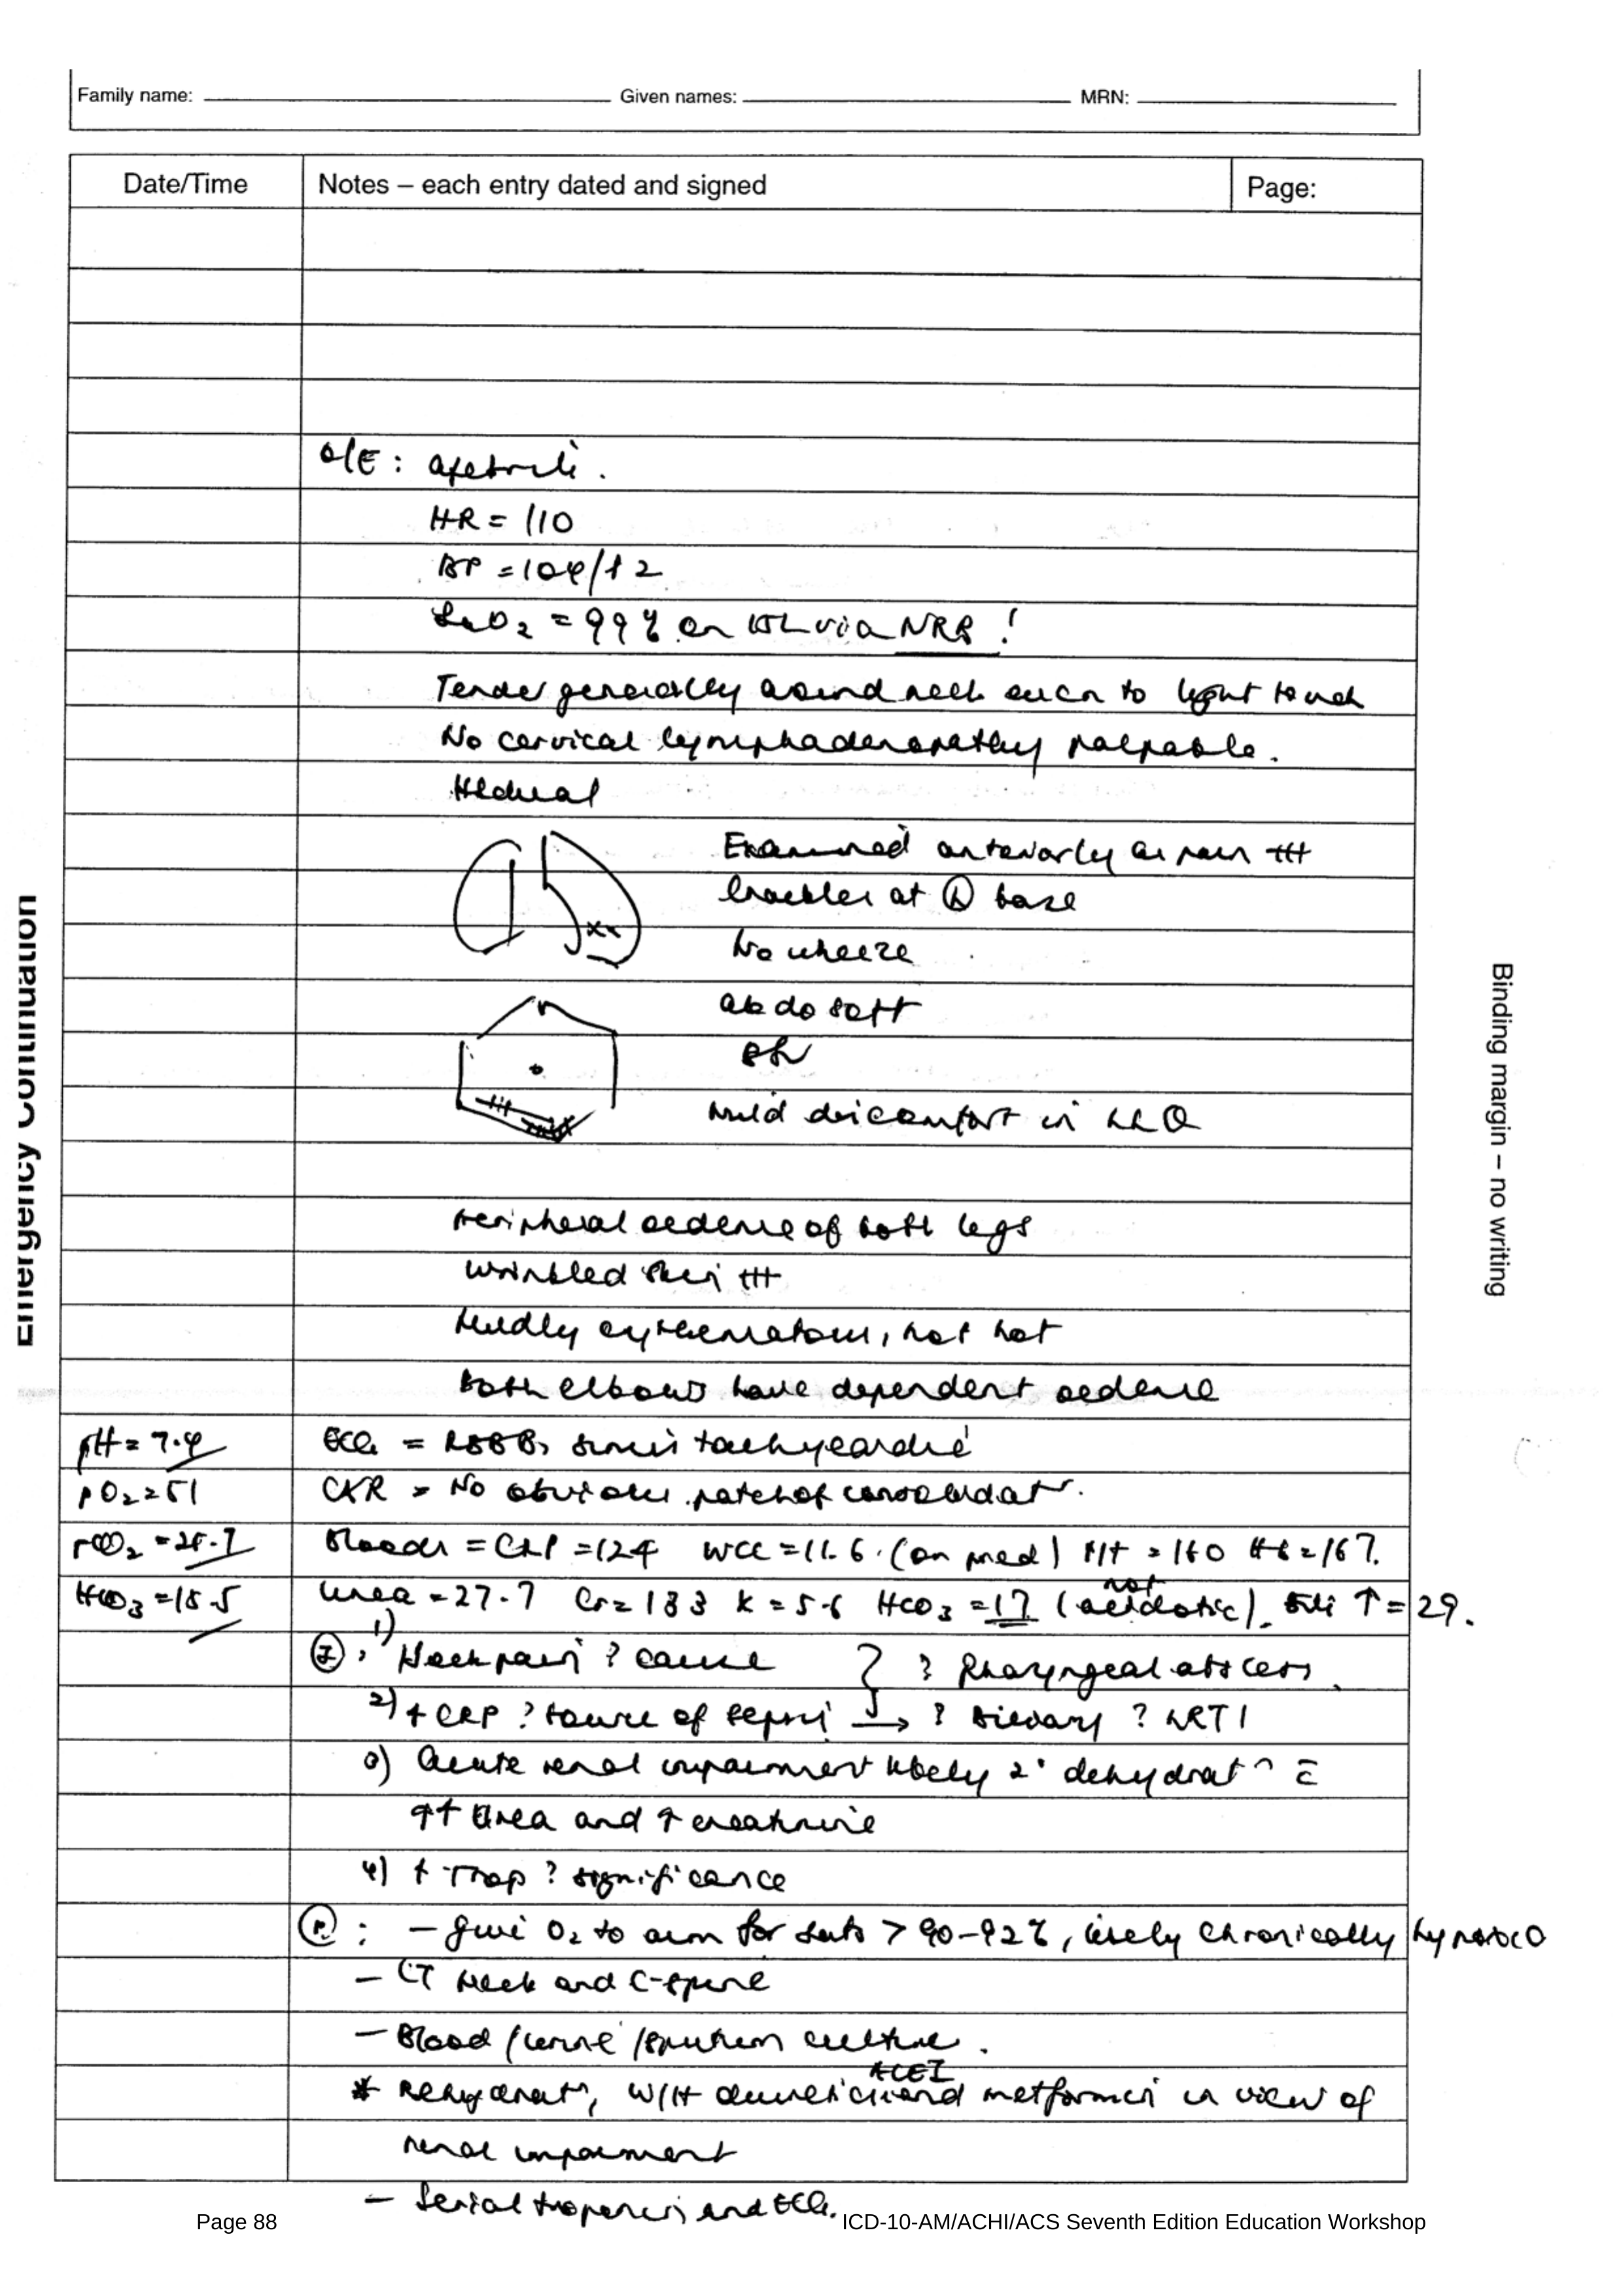 Family name: Given names: MRN:
Date/Time Notes – each entry dated and signed Page:
O/E : afebrile .
HR = 110
BP = 104/
SaO2 = 99% on 15L via NRB !
Tender generally around neck even to light touch
No cervical lymphadenopathy palpable.
Examined anteriorly as pain +++
Crackles at L base
No wheeze
abdo soft
mild discomfort in LLQ
Peripheral oedema of both legs
wrinkled skin +++
Mildly erythematous, not hot
Both elbows have dependent oedema
pH = 7.4 ECG = RBBB, sinus tachycardia
pO2 = 51 CXR = No obvious patch of consolidatn.
pCO2 = Bloods = CRP = 124 WCC = 11.6 (on pred) Plt = 160 Hb = 167.
HCO3 = 18.5 Urea = 27.7 Cr = 183 K = 5.6 HCO3 = 17 (not acidotic). ↑ = 29.
I : 1) Neck pain ? cause } ? Pharyngeal abscess.
2) ↑ CRP ? source of sepsis → ? Biliary ? LRTI
3) Acute renal impairment likely 2° dehydratn c̄
↑↑ Urea and ↑ creatinine
4) ↑ Trop ? significance
P : – give O2 to aim for sats > 90-92%, likely chronically hypoxic
– CT Neck and C-spine
– Blood / urine / sputum culture .
* Rehydratn, W/H diuretic ACEI and metformin in view of
renal impairment
– Serial troponin and ECG.
Emergency Continuation
Binding margin – no writing
Page 88 ICD-10-AM/ACHI/ACS Seventh Edition Education Workshop